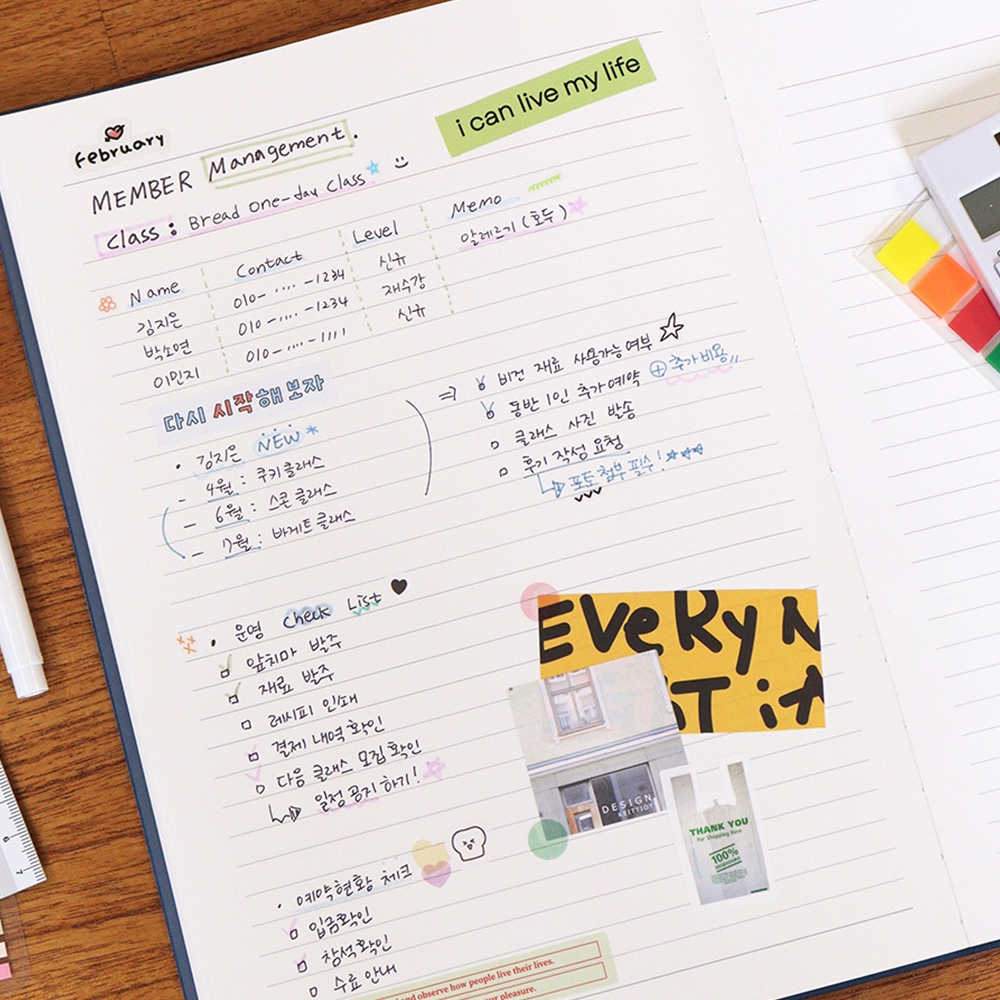 february
i can live my life
MEMBER Management.
Class : Bread one-day class
Name Contact Level Memo
김지은 010-····-1234 신규 알레르기 (호두)
박소연 010-····-1234 재수강
이민지 010-····-1111 신규
다시 시작해 보자
• 김지은 NEW
- 4월 : 쿠키클래스
- 6월 : 스콘클래스
- 7월 : 바게트클래스
⇒ 비건 재료 사용가능여부
동반 1인 추가예약 + 추가비용
클래스 사진 발송
후기 작성 요청
포토 첨부 필수!
• 운영 check List
앞치마 발주
재료 발주
레시피 인쇄
결제 내역 확인
다음 클래스 모집 확인
일정 공지 하기!
EVERY N
iT
DESIGN
KEITTIÖT
THANK YOU
For Shopping Here
100%
• 예약현황 체크
입금확인
참석확인
수료 안내
and observe how people live their lives.
our pleasure.
6
7